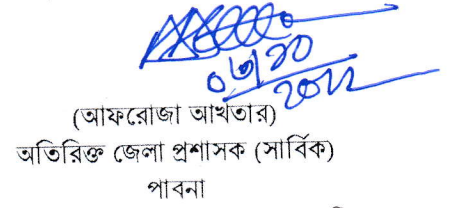 ০৬/১০
২০২২
(আফরোজা আখতার)
অতিরিক্ত জেলা প্রশাসক (সার্বিক)
পাবনা